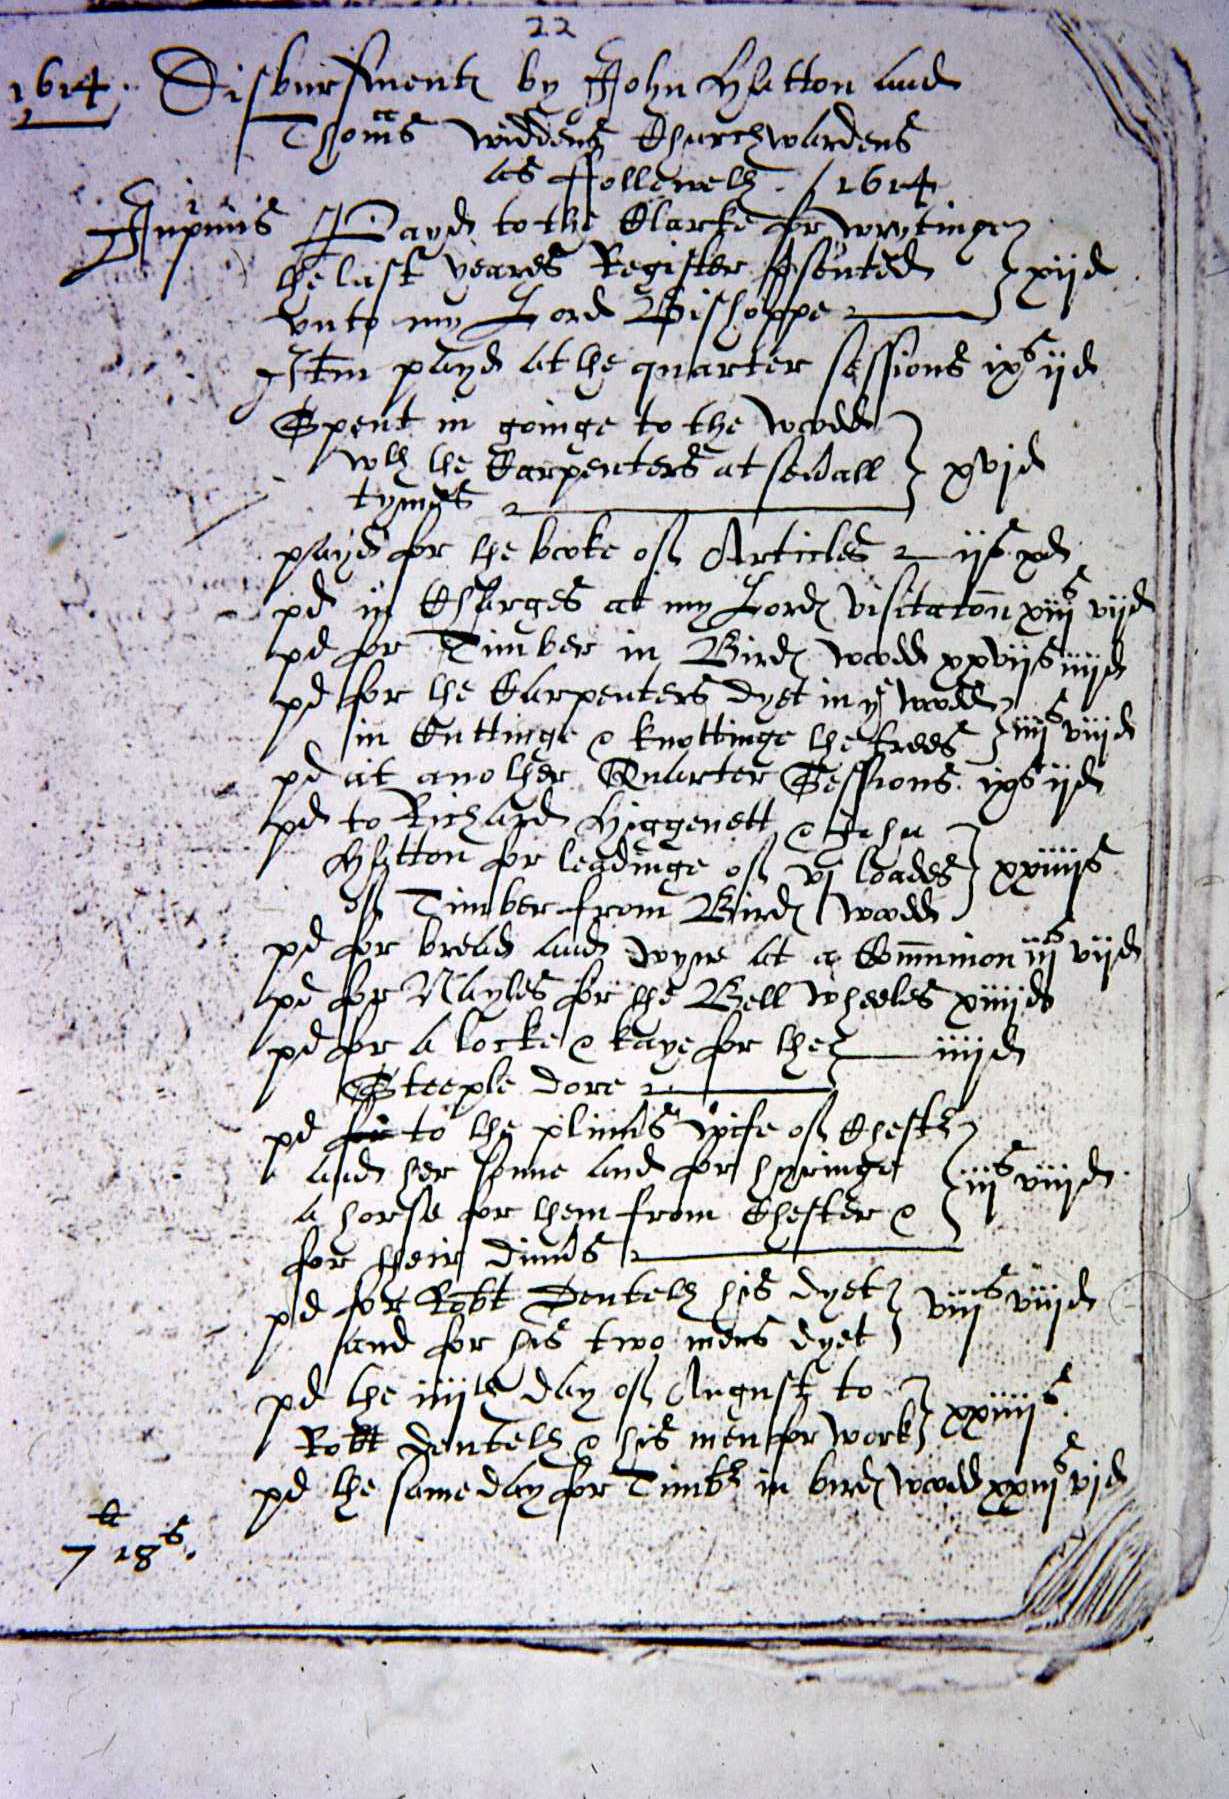 22
1614. Disbursments by John Hatton and
Thoms Widdens Churchwardens
as ffolleweth. / 1614
Inpimis Payd to the Clarke for wrytinge
the last yeares Register psented } xijd
vnto my Lord Bishoppe
Itm payd at the quarter sessions ixs ijd
Spent in goinge to the wodd
wth the Carpenters at seuall } xvjd
tymes
payd for the booke of Articles ijs xd
pd in Charges at my Lords visitacon xiijs vijd
pd for Timber in Birds wodd xxvijs iiijd
pd for the Carpenters dyet in ye wodd
in Cuttinge & knottinge the trees } iiijs viijd
pd at another Quarter Sessions. ixs ijd
pd to Richard Higgenett & John
Hatton for leadinge of vj loades } xxiiijs
of Timber from Birds wodd
pd for bread and wyne at a Communion iijs vijd
pd for Nayles for the Bell wheeles xiiijd
pd for a locke & kaye for the iiijd
Steeple dore
pd for to the wife of Chestr
and her sonne and for hyringe } iijs viijd
a horse for them from Chester &
for their
pd for Robt Denteth his dyet } viijs viijd
and for his two mens dyet
pd the iiijth day of August to
Robt Denteth & his men for work } xxiiijs
pd the same day for Timbr in birds wodd xxiijs vjd
7li 18s.